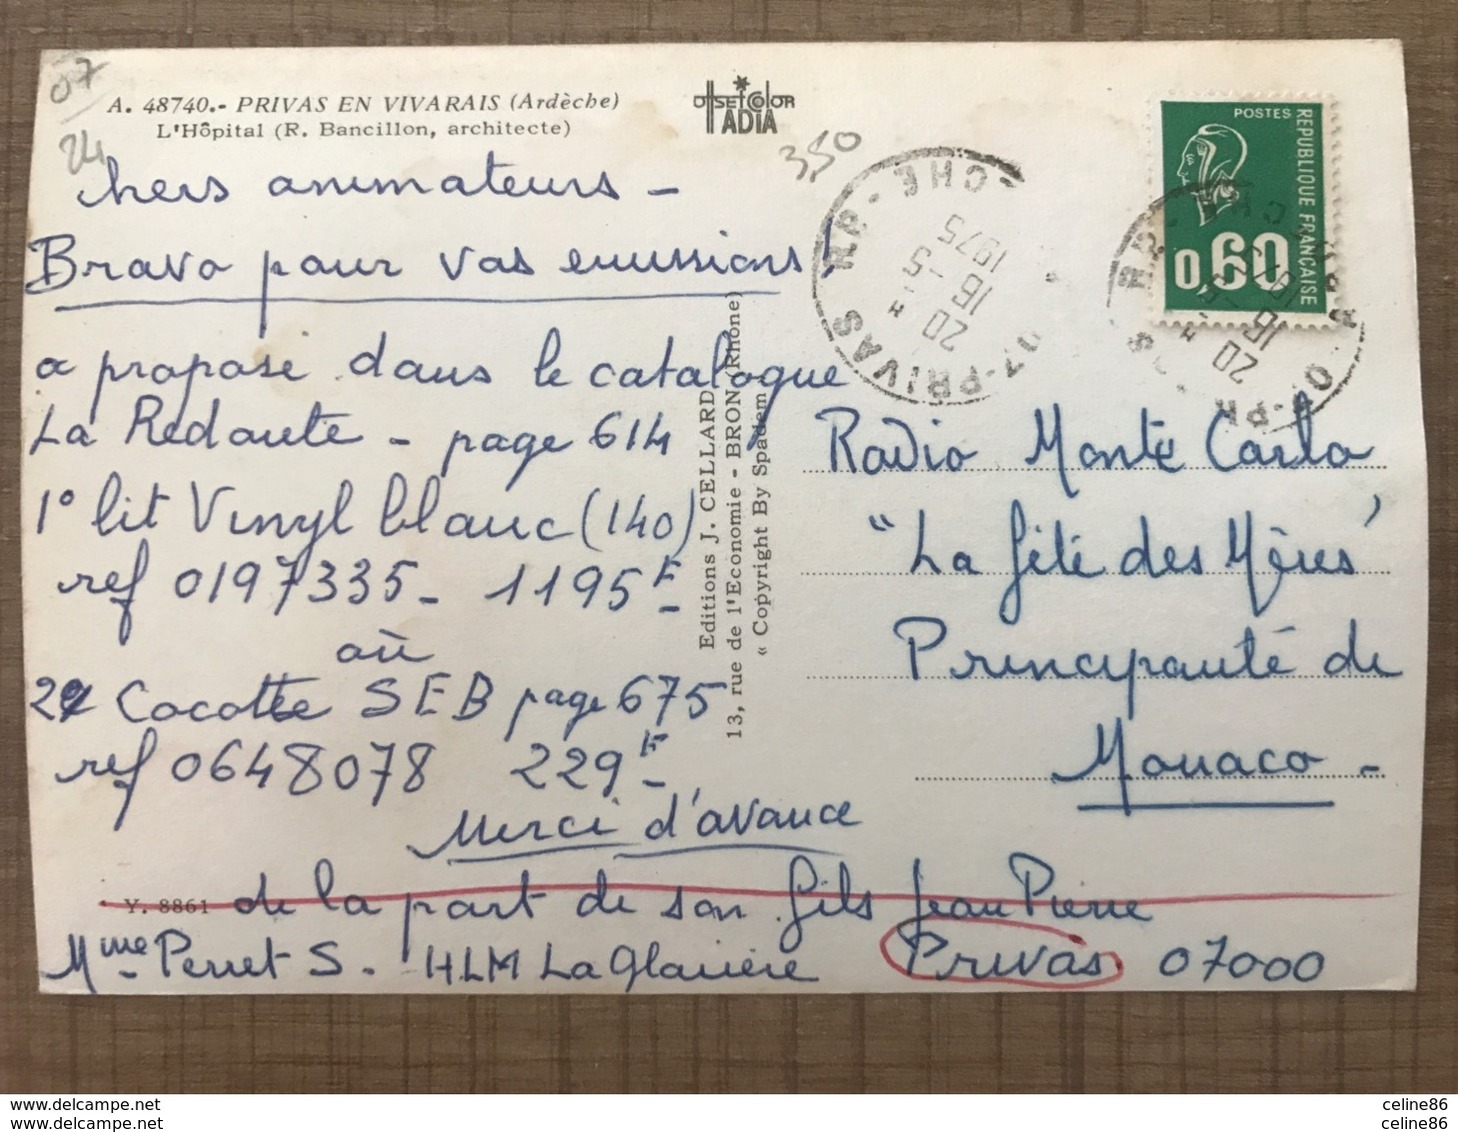 07
24
A. 48740.- PRIVAS EN VIVARAIS (Ardèche)
L'Hôpital (R. Bancillon, architecte)
OFFSET COLOR
ADIA
350
chers animateurs -
Bravo pour vos emissions !
a propose dans le catalogue
La Redoute - page 614
1° lit Vinyl blanc (140)
ref 0197335 - 1195F -
où
2 Cocotte SEB page 675
ref 0648078 229F -
Merci d'avance
de la part de son fils Jean Pierre
Mme Perret S. - HLM La Glacière Privas 07000
Y. 8861
Editions J. CELLARD
13, rue de l'Economie - BRON (Rhône)
« Copyright By Spadem »
07-PRIVAS RP - CHE
20 H
15 -5
1975
POSTES
REPUBLIQUE FRANÇAISE
0,60
Radio Monte Carlo
"La fête des Mères"
Principauté de
Monaco -
delcampe.net
celine86
celine86